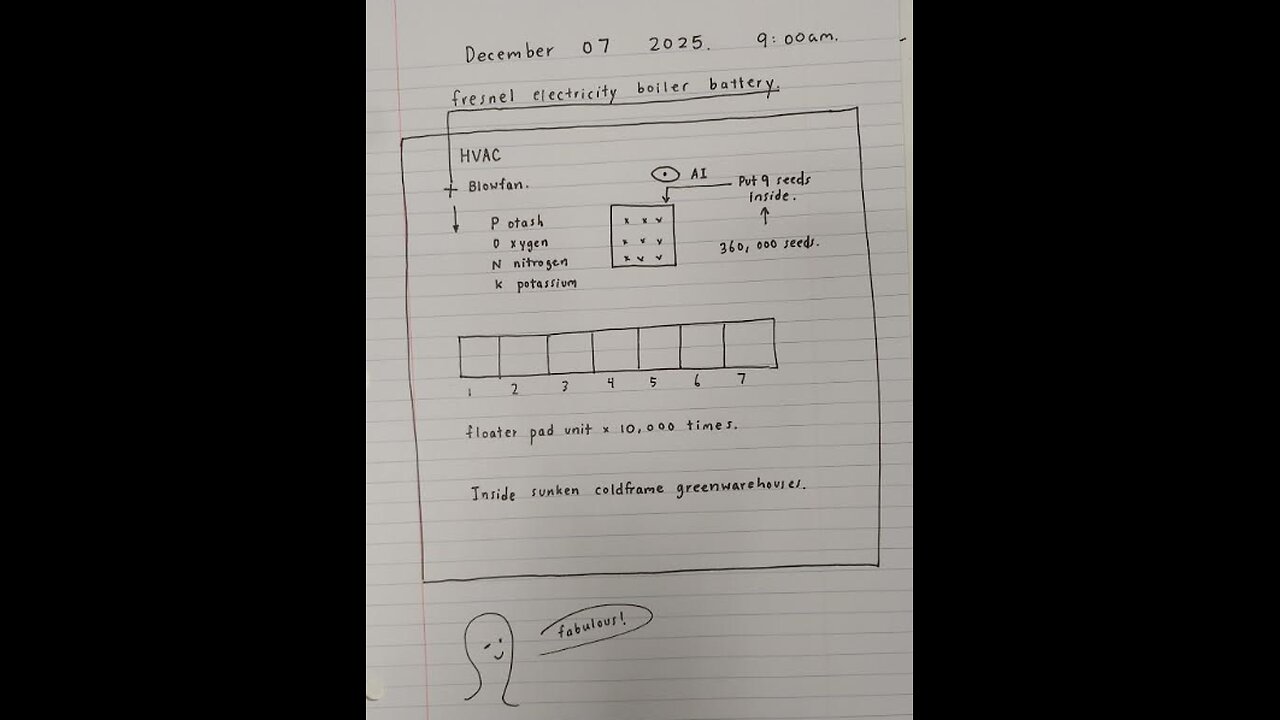 December 07 2025. 9:00am.
fresnel electricity boiler battery.
HVAC
Blowfan.
AI
Put 9 seeds
inside.
360,000 seeds.
P otash
O xygen
N nitrogen
K potassium
x x v
x v v
x v v
1 2 3 4 5 6 7
floater pad unit x 10,000 times.
Inside sunken coldframe greenwarehouses.
fabulous!